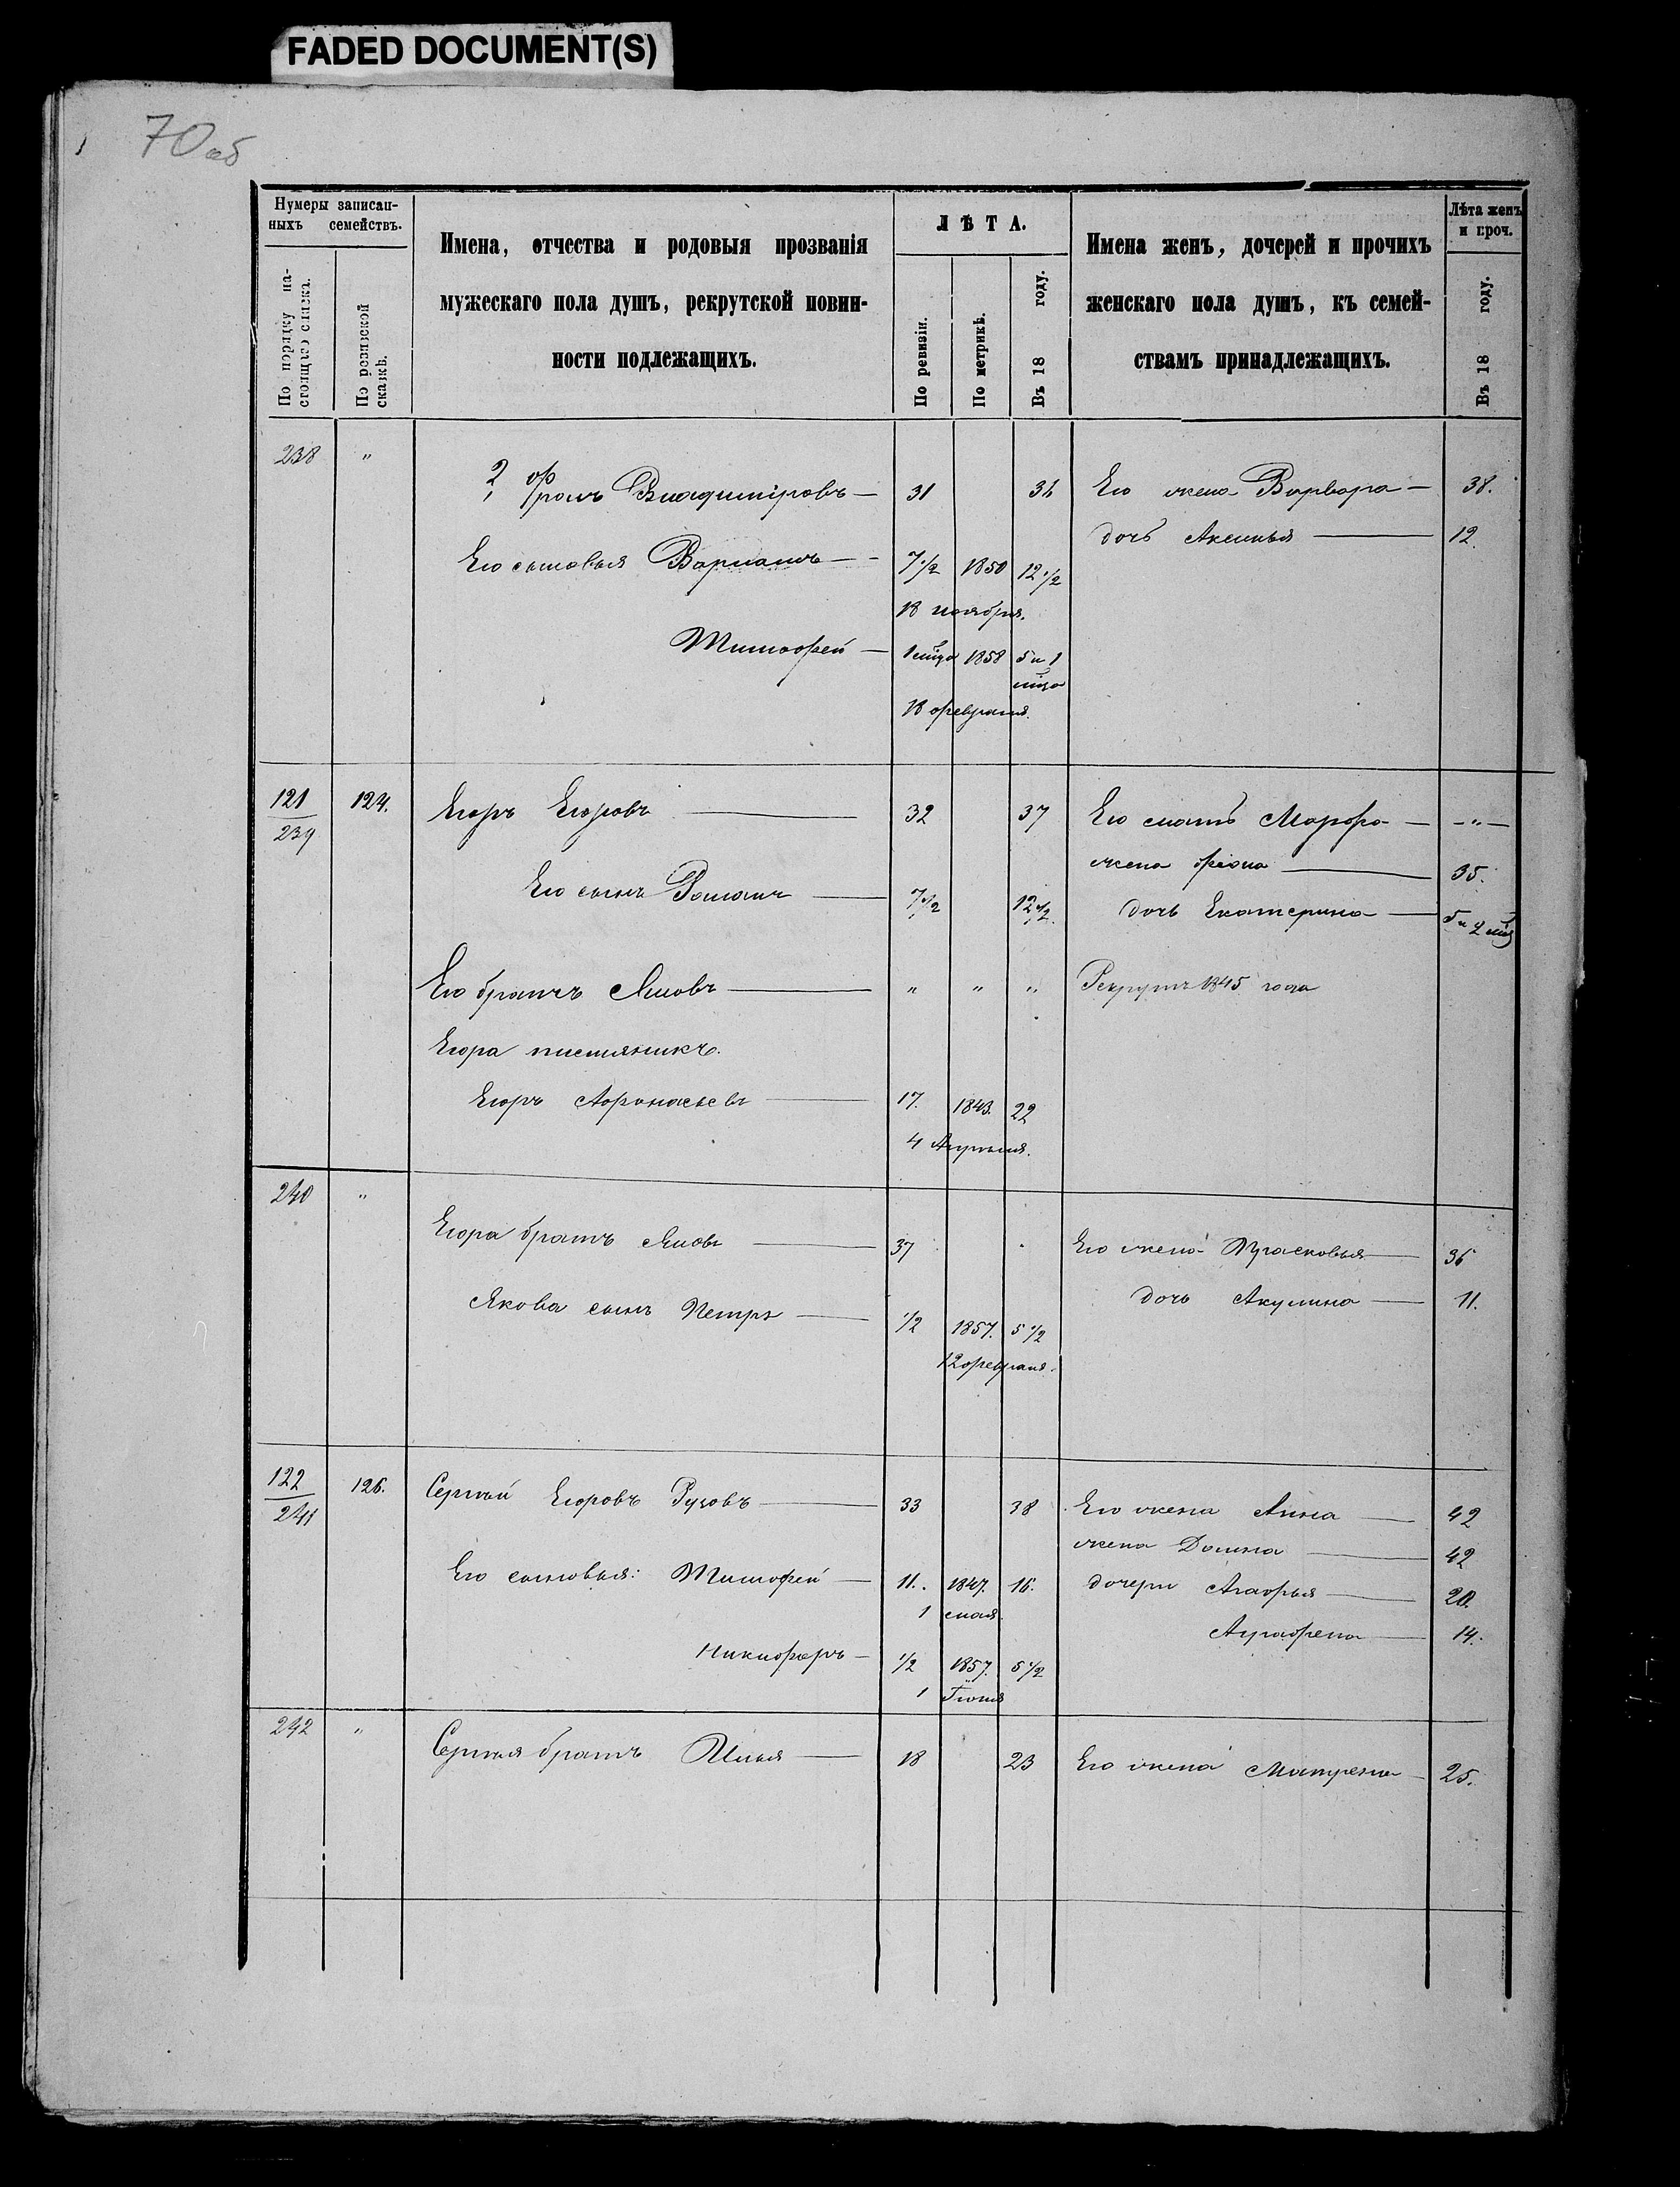 FADED DOCUMENT(S)
70об
Нумеры записан-
ныхъ семействъ.
По порядку на-
стоящаго списка.
По ревизской
сказкѣ.
Имена, отчества и родовыя прозванія
мужескаго пола душъ, рекрутской повин-
ности подлежащихъ.
ЛѢТА.
По ревизіи.
По метрикѣ.
Въ 18 году.
Имена женъ, дочерей и прочихъ
женскаго пола душъ, къ семей-
ствамъ принадлежащихъ.
Лѣта женъ
и проч.
Въ 18 году.
238 "
2, Фролъ Владиміровъ — 31 Его жена Варвара — 38.
дочь Аксинья — 12.
Его сыновья Варламъ — 7 1/2 1850 12 1/2
18 ноября.
Тимофей — 1 мѣца 1858 5 и 1
мѣца
18 февраля.
121 124. Егоръ Егоровъ — 32 37 Его мать Марфа — "
239
жена — 35.
Его сынъ Романъ — 7 1/2 12 1/2 дочь Екатерина — 5 и 2 мѣц
Его братъ Яковъ — " " " Рекрутъ 1845 года
Егора племяникъ.
Егоръ Афонасьевъ — 17. 1843. 22
4 Апрѣля.
240 "
Егора братъ Яковъ — 37 Его жена Прасковья — 36
Якова сынъ Петръ — 1/2 1857. 5 1/2 дочь Акулина — 11.
12 февраля.
122 126. Сергѣй Егоровъ — 33 38 Его жена Анна — 42
241
жена Домна — 42
Его сыновья: Тимофей — 11. 1847. 16. дочери Агафья — 20.
1 мая.
Аграфена — 14.
Никифоръ — 1/2 1857. 5 1/2
1 Іюня
242 " Сергѣя братъ Илья — 18 23 Его жена Матрена — 25.